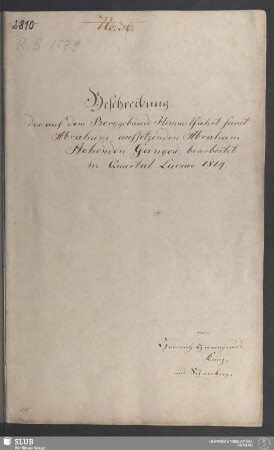 2810
No: 36.
R.B 1579
Beschreibung
des auf dem Berggebäude Himmelfahrt samt
Abraham, aufsetzenden Abraham
Stehenden Ganges, bearbeitet
in Quartal Luciae 1814.
von
Heinrich
aus
SLUB
Wir führen Wissen.